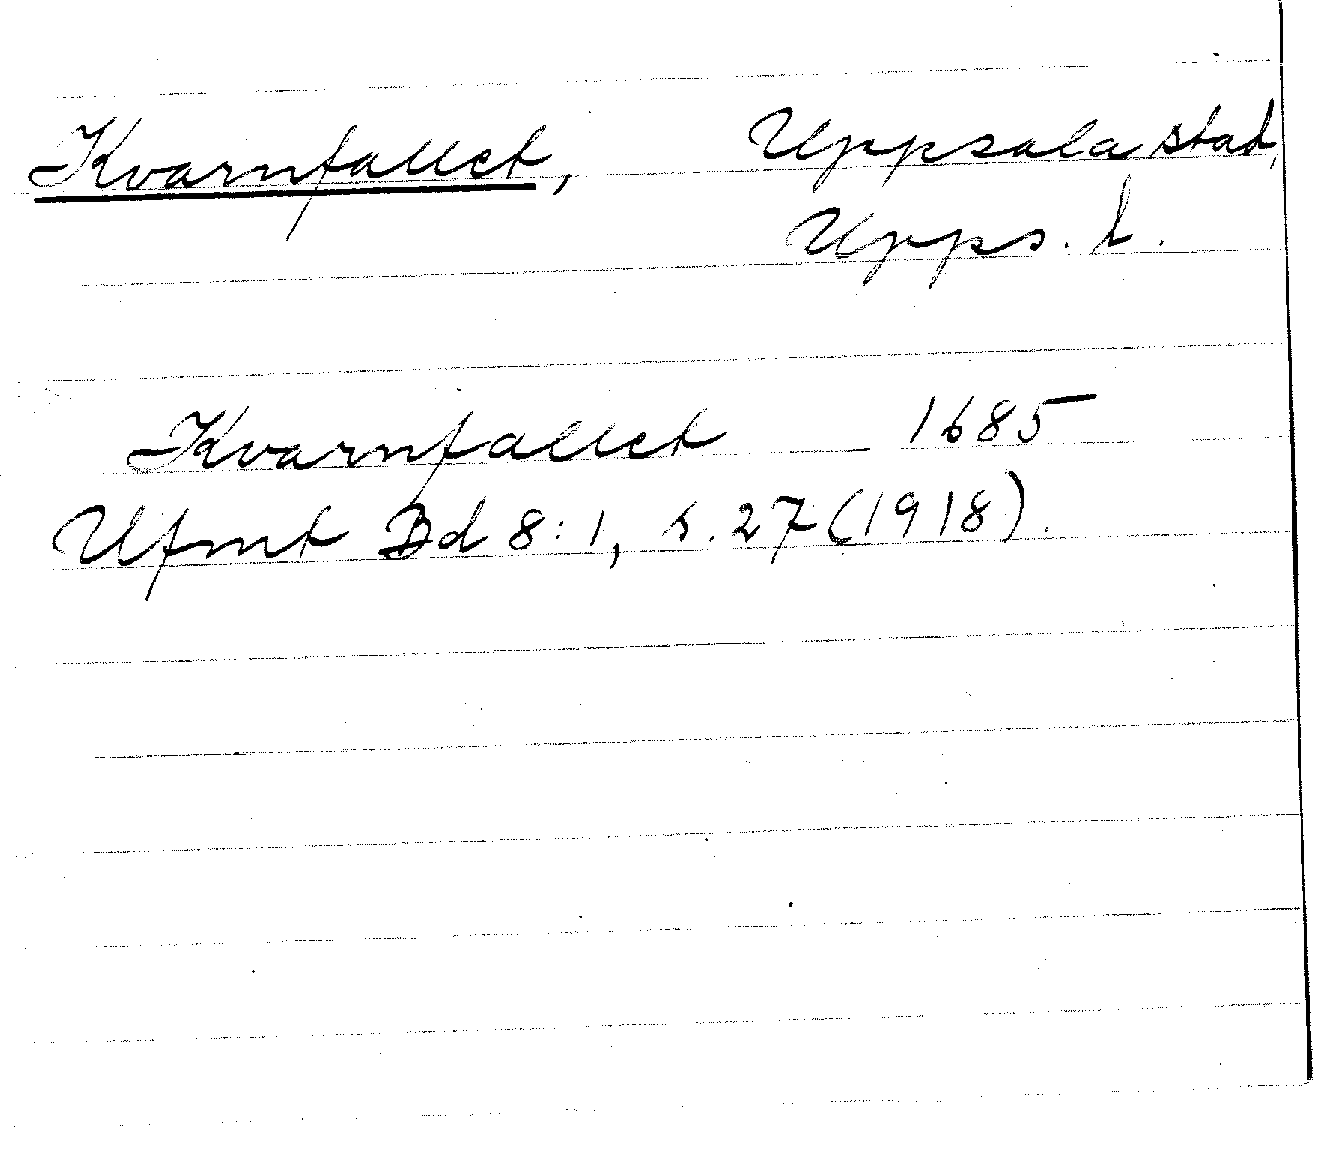 Kvarnfallet, Uppsala stad,
Upps. l.
Kvarnfallet 1685
Ufmt Bd 8:1, s. 27 (1918).